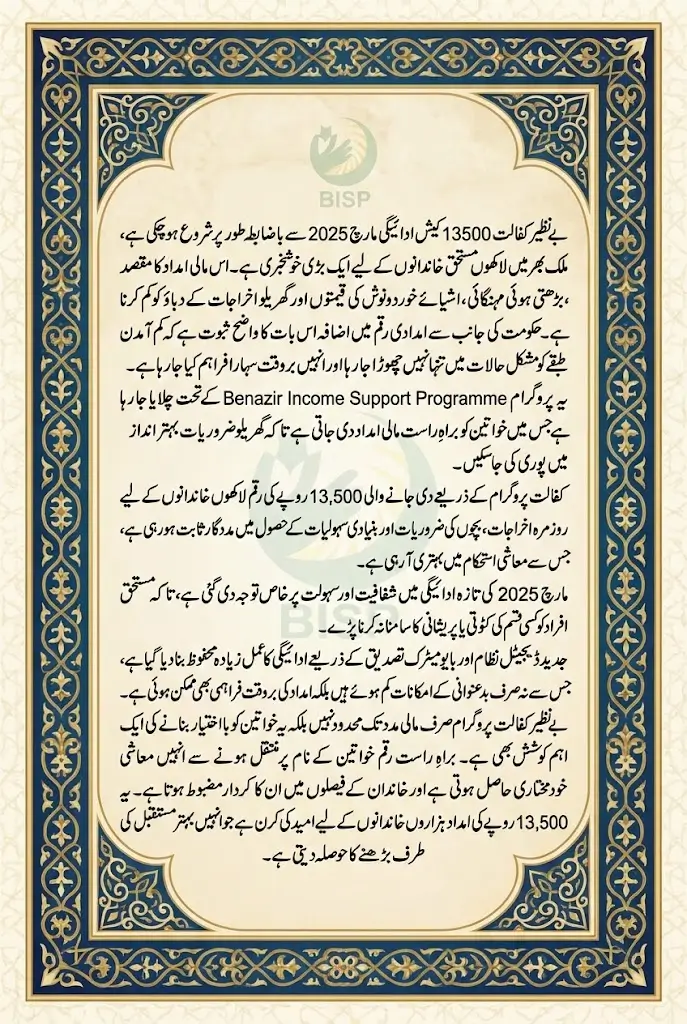 BISP
بے نظیر کفالت 13500 کیش ادائیگی مارچ 2025 سے باضابطہ طور پر شروع ہو چکی ہے،
ملک بھر میں لاکھوں مستحق خاندانوں کے لیے ایک بڑی خوشخبری ہے۔ اس مالی امداد کا مقصد
،بڑھتی ہوئی مہنگائی، اشیائے خوردونوش کی قیمتوں اور گھریلو اخراجات کے دباؤ کو کم کرنا
ہے۔ حکومت کی جانب سے امدادی رقم میں اضافہ اس بات کا واضح ثبوت ہے کہ کم آمدن
طبقے کو مشکل حالات میں تنہا نہیں چھوڑا جا رہا اور انہیں بروقت سہارا فراہم کیا جا رہا ہے۔
یہ پروگرام Benazir Income Support Programme کے تحت چلایا جا رہا
ہے جس میں خواتین کو براہِ راست مالی امداد دی جاتی ہے تاکہ گھریلو ضروریات بہتر انداز
میں پوری کی جا سکیں۔
کفالت پروگرام کے ذریعے دی جانے والی 13,500 روپے کی رقم لاکھوں خاندانوں کے لیے
روزمرہ اخراجات، بچوں کی ضروریات اور بنیادی سہولیات کے حصول میں مددگار ثابت ہو رہی ہے،
جس سے معاشی استحکام میں بہتری آ رہی ہے۔
مارچ 2025 کی تازہ ادائیگی میں شفافیت اور سہولت پر خاص توجہ دی گئی ہے، تاکہ مستحق
افراد کو کسی قسم کی کٹوتی یا پریشانی کا سامنا نہ کرنا پڑے۔
BISP
جدید ڈیجیٹل نظام اور بایومیٹرک تصدیق کے ذریعے ادائیگی کا عمل زیادہ محفوظ بنا دیا گیا ہے،
جس سے نہ صرف بدعنوانی کے امکانات کم ہوئے ہیں بلکہ امداد کی بروقت فراہمی بھی ممکن ہوئی ہے۔
بے نظیر کفالت پروگرام صرف مالی مدد تک محدود نہیں بلکہ یہ خواتین کو بااختیار بنانے کی ایک
اہم کوشش بھی ہے۔ براہِ راست رقم خواتین کے نام پر منتقل ہونے سے انہیں معاشی
خودمختاری حاصل ہوتی ہے اور خاندان کے فیصلوں میں ان کا کردار مضبوط ہوتا ہے۔ یہ
13,500 روپے کی امداد ہزاروں خاندانوں کے لیے امید کی کرن ہے جو انہیں بہتر مستقبل کی
طرف بڑھنے کا حوصلہ دیتی ہے۔